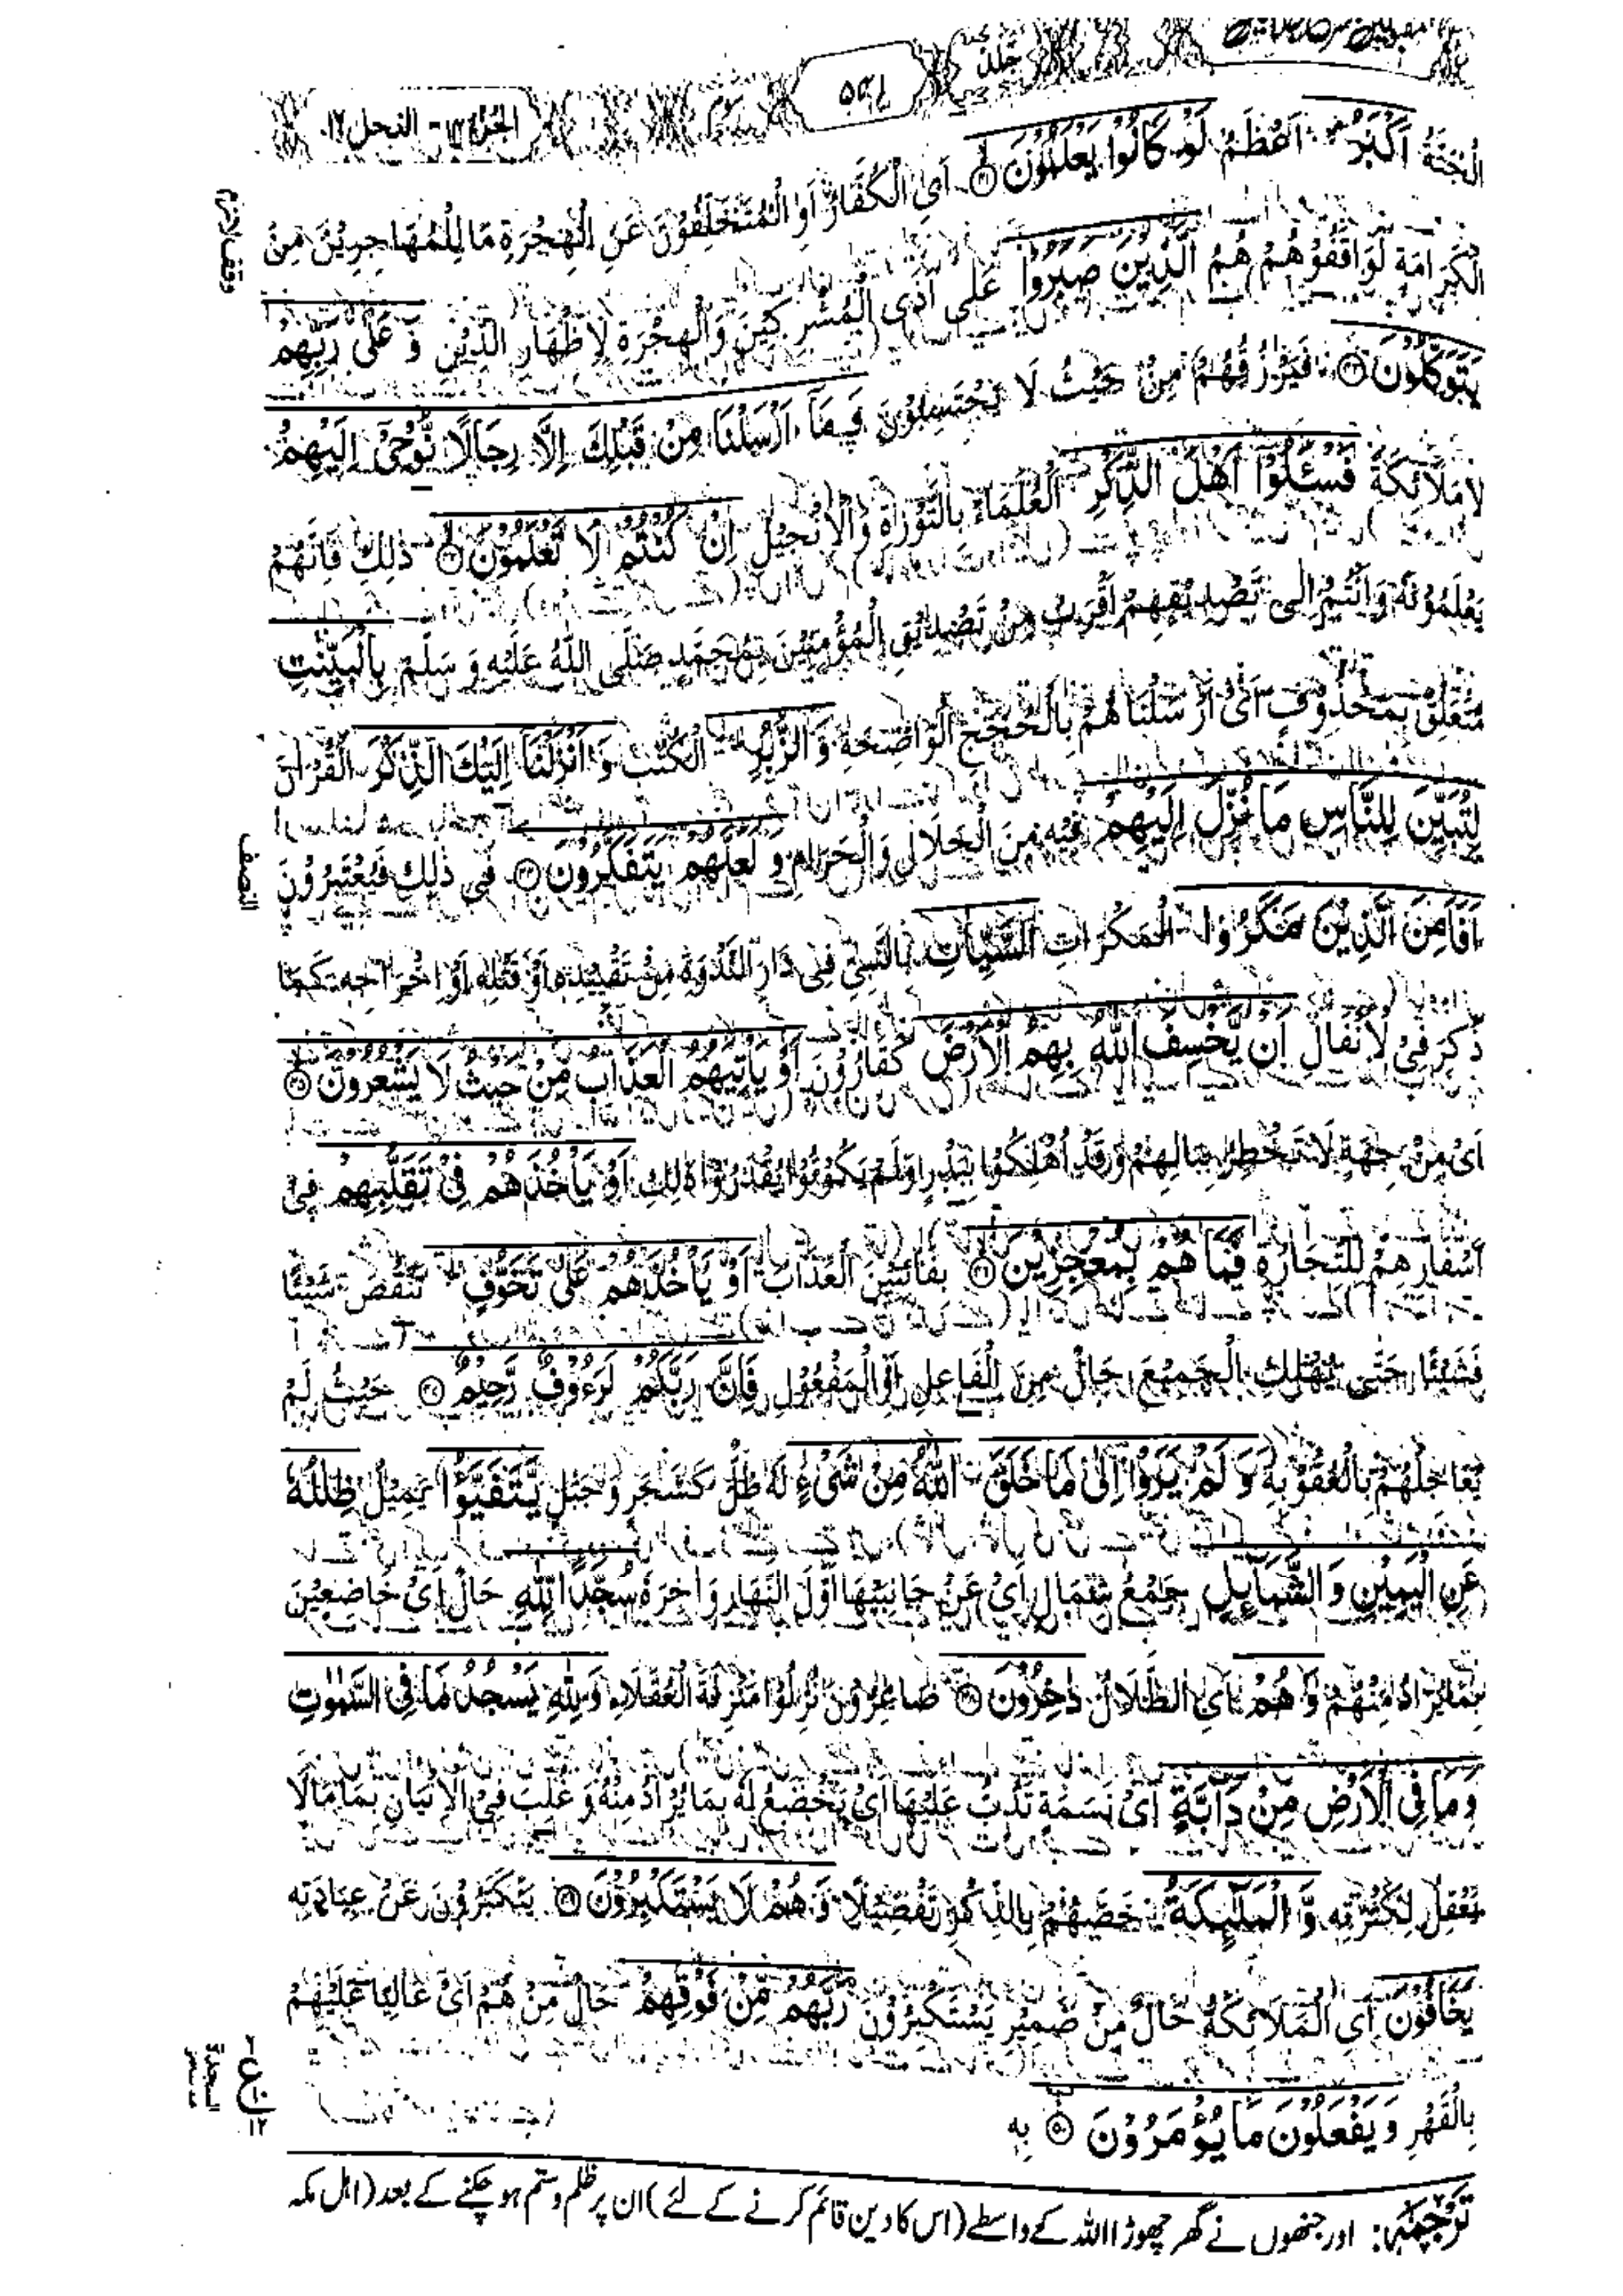 جلد
۵۹۱
الجزء ۱۴ - النحل ۱۶
الْجَنَّةُ اَكْبَرُ اَعْظَمُ لَوْ كَانُوْا يَعْلَمُوْنَ ۝۴۱ اَيِ الْكُفَّارُ اَوِ الْمُتَخَلِّفُوْنَ عَنِ الْهِجْرَةِ مَا لِلْمُهَاجِرِيْنَ مِنَ
الْكَرَامَةِ لَوَافَقُوْهُمْ هُمُ الَّذِيْنَ صَبَرُوْا عَلٰى اَذَى الْمُشْرِكِيْنَ وَالْهِجْرَةِ لِاِظْهَارِ الدِّيْنِ وَ عَلٰى رَبِّهِمْ
يَتَوَكَّلُوْنَ ۝۴۲ فَيَرْزُقُهُمْ مِنْ حَيْثُ لَا يَحْتَسِبُوْنَ وَمَآ اَرْسَلْنَا مِنْ قَبْلِكَ اِلَّا رِجَالًا نُّوْحِىْٓ اِلَيْهِمْ
لَا مَلَائِكَةً فَسْئَلُوْٓا اَهْلَ الذِّكْرِ الْعُلَمَاءَ بِالتَّوْرَاةِ وَالْاِنْجِيْلِ اِنْ كُنْتُمْ لَا تَعْلَمُوْنَ ۝۴۳ ذٰلِكَ فَاِنَّهُمْ
يَعْلَمُوْنَهٗ وَاَنْتُمْ اِلٰى تَصْدِيْقِهِمْ اَقْرَبُ مِنْ تَصْدِيْقِ الْمُؤْمِنِيْنَ بِمُحَمَّدٍ صَلَّى اللّٰهُ عَلَيْهِ وَ سَلَّمَ بِالْبَيِّنٰتِ
مُتَعَلِّقٌ بِمَحْذُوْفٍ اَىْ اَرْسَلْنَاهُمْ بِالْحُجَجِ الْوَاضِحَةِ وَالزُّبُرِ الْكُتُبِ وَ اَنْزَلْنَآ اِلَيْكَ الذِّكْرَ الْقُرْاٰنَ
لِتُبَيِّنَ لِلنَّاسِ مَا نُزِّلَ اِلَيْهِمْ فِيْهِ مِنَ الْحَلَالِ وَالْحَرَامِ وَ لَعَلَّهُمْ يَتَفَكَّرُوْنَ ۝۴۴ فِي ذٰلِكَ فَيَعْتَبِرُوْنَ
اَفَاَمِنَ الَّذِيْنَ مَكَرُوا الْمَكَرَاتِ السَّيِّاٰتِ بِالنَّبِيِّ فِي دَارِ النَّدْوَةِ مِنْ تَقْيِيْدِهٖ اَوْ قَتْلِهٖ اَوْ اِخْرَاجِهٖ كَمَا
ذُكِرَ فِيْ لْاَنْفَالِ اَنْ يَّخْسِفَ اللّٰهُ بِهِمُ الْاَرْضَ كَقَارُوْنَ اَوْ يَاْتِيَهُمُ الْعَذَابُ مِنْ حَيْثُ لَا يَشْعُرُوْنَ ۝۴۵
اَىْ مِنْ جِهَةٍ لَا تَخْطُرُ بِبَالِهِمْ وَقَدْ اُهْلِكُوْا بِبَدْرٍ وَلَمْ يَكُوْنُوْا يُقَدِّرُوْا ذٰلِكَ اَوْ يَاْخُذَهُمْ فِيْ تَقَلُّبِهِمْ فِىْ
اَسْفَارِهِمْ لِلتِّجَارَةِ فَمَا هُمْ بِمُعْجِزِيْنَ ۝۴۶ بِفَائِتِيْنَ الْعَذَابَ اَوْ يَاْخُذَهُمْ عَلٰى تَخَوُّفٍ تَنَقُّصٍ شَيْئًا
فَشَيْئًا حَتّٰى يُهْلِكَ الْجَمِيْعَ حَالٌ مِنَ الْفَاعِلِ اَوِ الْمَفْعُوْلِ فَاِنَّ رَبَّكُمْ لَرَءُوْفٌ رَّحِيْمٌ ۝۴۷ حَيْثُ لَمْ
يُعَاجِلْهُمْ بِالْعُقُوْبَةِ اَوَ لَمْ يَرَوْا اِلٰى مَا خَلَقَ اللّٰهُ مِنْ شَىْءٍ لَهٗ ظِلٌّ كَشَجَرٍ وَ جَبَلٍ يَّتَفَيَّؤُا يَمِيْلُ ظِلٰلُهٗ
عَنِ الْيَمِيْنِ وَ الشَّمَآئِلِ جَمْعُ شِمَالٍ اَيْ عَنْ جَانِبَيْهَا اَوَّلَ النَّهَارِ وَ اٰخِرَهٗ سُجَّدًا لِّلّٰهِ حَالٌ اَىْ خَاضِعِيْنَ
بِمَا يُرَادُ مِنْهُمْ وَ هُمْ اَىِ الظِّلَالُ دٰخِرُوْنَ ۝۴۸ صَاغِرُوْنَ نُزِّلُوْا مَنْزِلَةَ الْعُقَلَاءِ وَلِلّٰهِ يَسْجُدُ مَا فِى السَّمٰوٰتِ
وَمَا فِى الْاَرْضِ مِنْ دَآبَّةٍ اَىْ نَسَمَةٍ تَدُبُّ عَلَيْهَا اَىْ يَخْضَعُ لَهٗ بِمَا يُرَادُ مِنْهُ وَ غُلِّبَ فِي الْاِتْيَانِ بِمَا مَالَا
يَعْقِلُ لِكَثْرَتِهٖ وَّ الْمَلٰٓئِكَةُ خَصَّهُمْ بِالذِّكْرِ تَفْضِيْلًا وَ هُمْ لَا يَسْتَكْبِرُوْنَ ۝۴۹ يَتَكَبَّرُوْنَ عَنْ عِبَادَتِهٖ
يَخَافُوْنَ اَىِ الْمَلَائِكَةُ حَالٌ مِنْ ضَمِيْرِ يَسْتَكْبِرُوْنَ رَبَّهُمْ مِّنْ فَوْقِهِمْ حَالٌ مِنْ هُمْ اَىْ عَالِيًا عَلَيْهِمْ
بِالْقَهْرِ وَ يَفْعَلُوْنَ مَا يُؤْمَرُوْنَ ۝۵۰ بِهٖ
النصف
السجدة
تَرْجَمَہ: اور جنھوں نے گھر چھوڑا اللہ کے واسطے (اس کا دین قائم کرنے کے لئے) ان پر ظلم و ستم ہو چکنے کے بعد (اہل مکہ